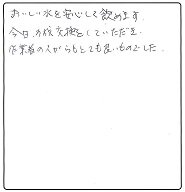 おいしい水を安心して飲めます。
今日、の様交換をしていただき、
作業者の人がらもとても良いものでした。